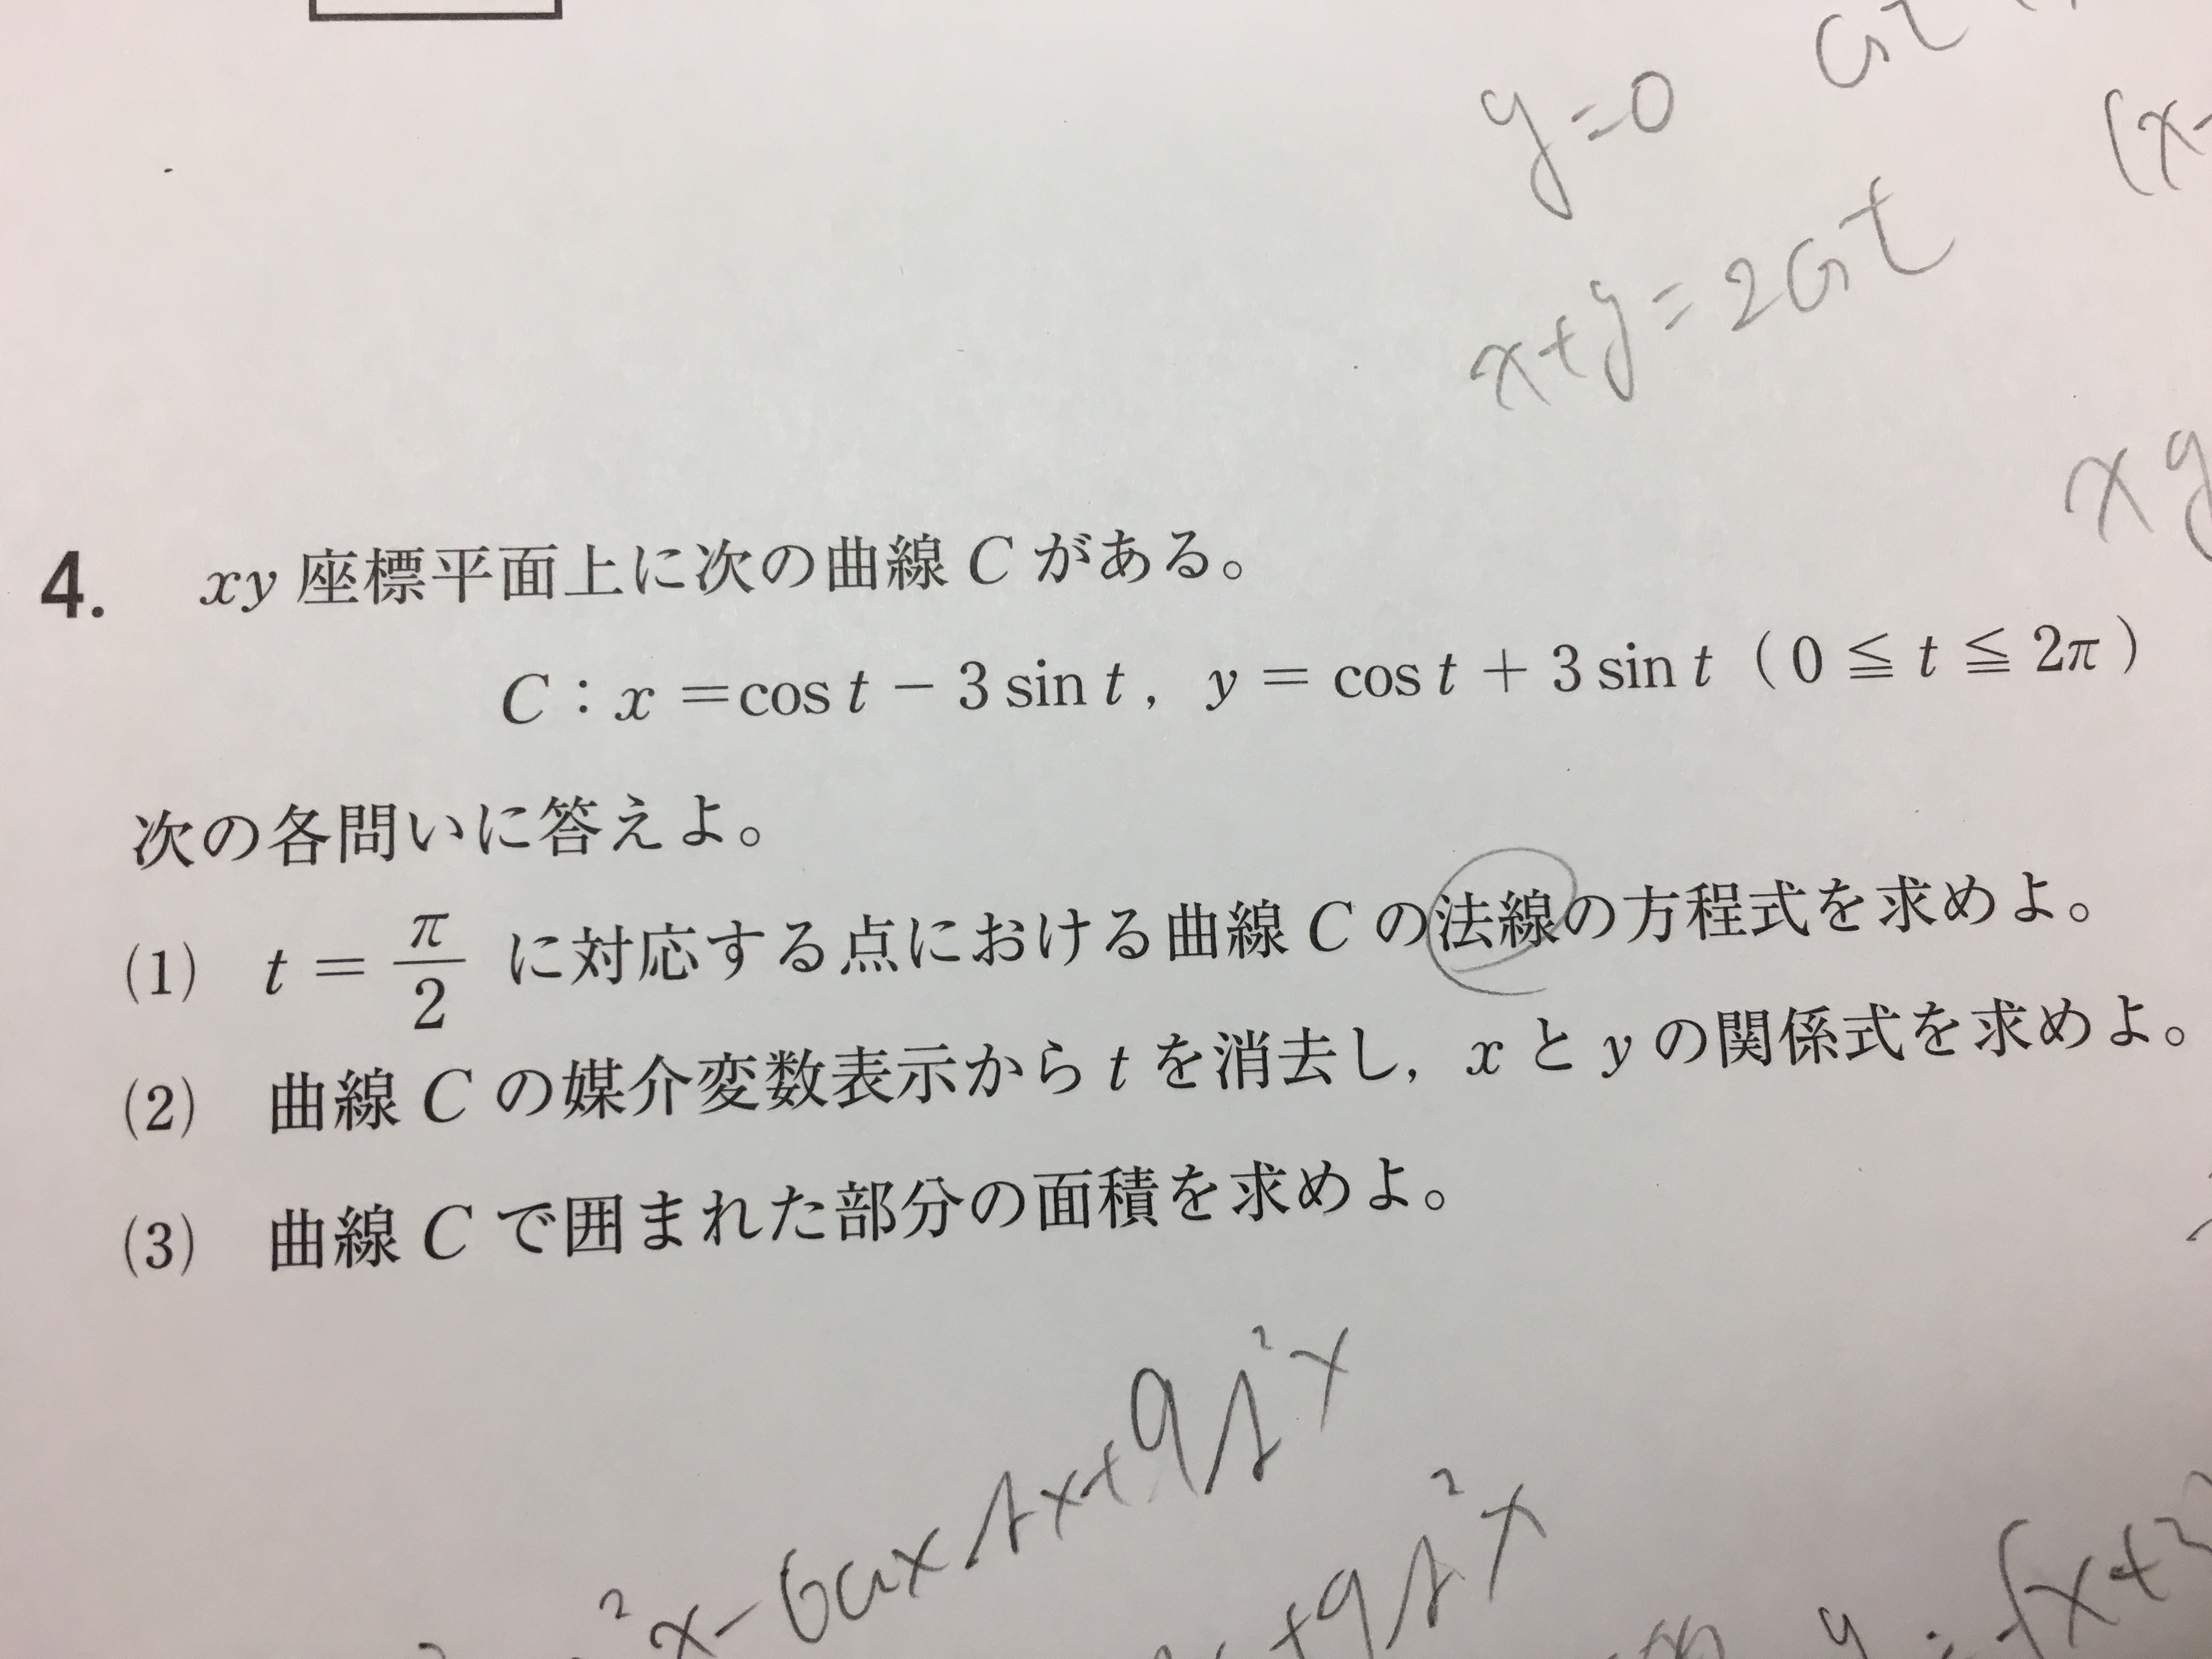 y=0
x+y=2cost
4. xy 座標平面上に次の曲線 C がある。
C：x = cos t − 3 sin t, y = cos t + 3 sin t ( 0 ≦ t ≦ 2π )
次の各問いに答えよ。
(1) t = π/2 に対応する点における曲線 C の法線の方程式を求めよ。
(2) 曲線 C の媒介変数表示から t を消去し, x と y の関係式を求めよ。
(3) 曲線 C で囲まれた部分の面積を求めよ。